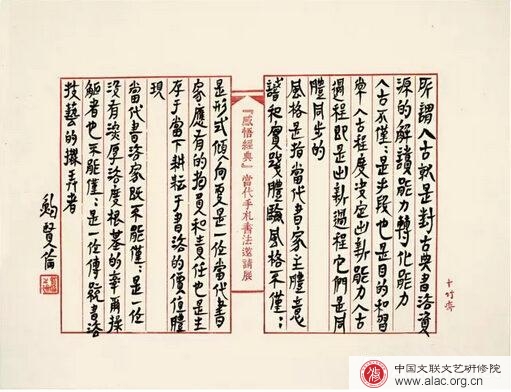 所謂入古就是對古典書法資
源的解讀能力轉化能力
入古不僅〻是手段也是目的和習
常入古程度決定出新能力入古
過程即是出新過程它們是同
體同步的
風格是指當代書家主體意
識和實踐體驗風格不僅〻
『感悟經典』當代手札書法邀請展
是形式傾向更是一位當代書
家應有的和責任也是
存于當下耕耘于書法的價值體
現
當代書法家既不能僅〻是一位
沒有深厚法度根基的率爾操
觚者也不能僅〻是一位傳統書法
技藝的撥弄者
鮑賢倫
十竹齋
中国文联文艺研修院
www.alac.org.cn